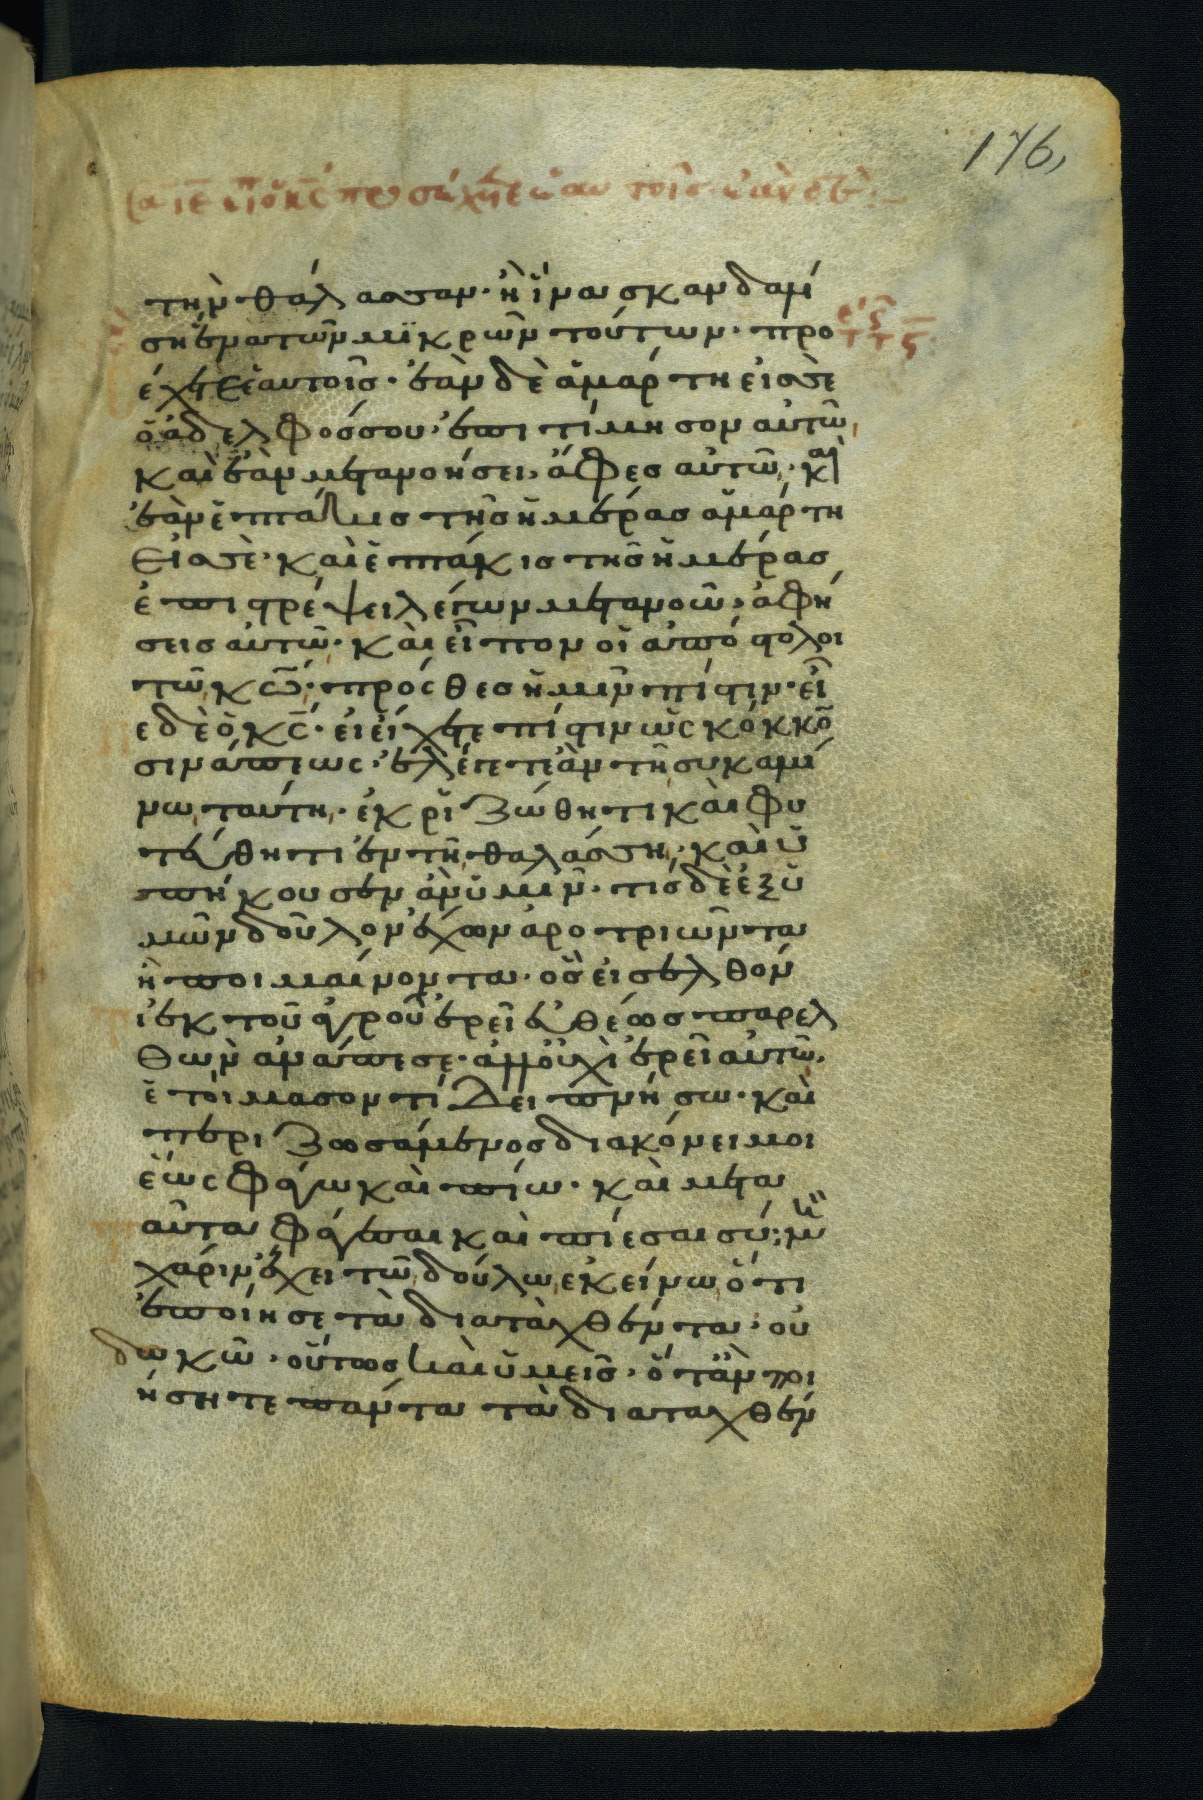 176,
εἶπ ὁ κς προσέχετε ἑαυτοῖς ἐὰν δὲ
τὴν θάλασσαν· ἢ ἵνα σκανδαλί
ση ἕνα τῶν μϊκρῶν τούτων· προ
έχετε ἑαυτοῖς· ἐὰν δὲ ἁμάρτη εἰς σὲ
ὁ ἀδελφός σου· ἐπιτίμησον αὐτῶ,
καὶ ἐὰν μετανοήσει, ἄφες αὐτῶ· καὶ
ἐὰν ἑπτάκις τῆς ἡμέρας ἁμάρτη
εἰς σὲ· καὶ ἑπτάκις τῆς ἡμέρας
ἐπιστρέψει λέγων μετανοῶ, ἀφή
σεις αὐτῶ· καὶ εἶπον οἱ ἀπόστολοι
τῶ κω· πρόσθες ἡμῖν πίστιν· εἶ
πε δὲ ὁ κς· εἰ εἴχετε πίστιν ὡς κόκκον
σινάπεως· ἐλέγετε ἂν τῆ συκαμί
νω ταύτη· ἐκριζώθητι καὶ φυ
τεύθητι ἐν τῆ θαλάσση, καὶ ὑ
πήκουσεν ἂν ὑμῖν· τίς δὲ ἐξ ὑ
μῶν δοῦλον ἔχων ἀροτριῶντα
ἢ ποιμαίνοντα· ὃς εἰσελθόν
τι ἐκ τοῦ ἀγροῦ ἐρεῖ εὐθέως παρελ
θὼν ἀνάπεσε· ἀλλ' οὐχὶ ἐρεῖ αὐτῶ,
ἑτοίμασον τί δειπνήσω· καὶ
περιζωσάμενος διακόνει μοι
ἕως φάγω καὶ πίω· καὶ μετὰ
αῦτα φάγεσαι καὶ πίεσαι σύ; μὴ
χάριν ἔχει τῶ δούλω ἐκείνω ὅτι
ἐποίησε τὰ διαταχθέντα· οὐ
δοκῶ· οὕτως καὶ ὑμεῖς· ὅταν ποι
ήσητε πάντα τὰ διαταχθέν